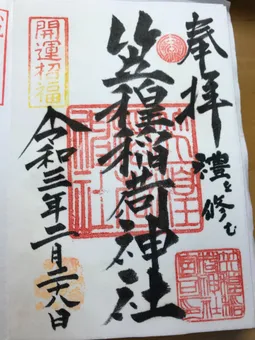 奉拝
禮を修む
笠䅣稲荷神社
開運招福
令和三年二月二十八日